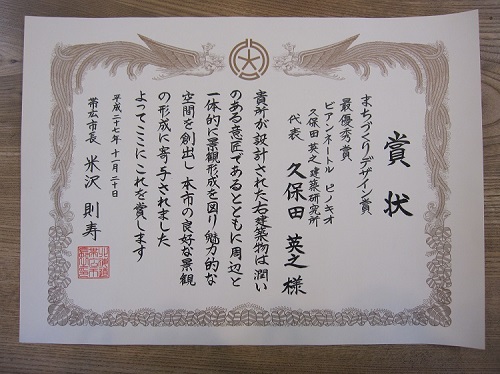 賞状
まちづくりデザイン賞
最優秀賞
ビアンネートル ピノキオ
久保田英之建築研究所
代表 久保田 英之 様
貴所が設計された右建築物は潤い
のある意匠であるとともに周辺と
一体的に景観形成を図り魅力的な
空間を創出し本市の良好な景観
の形成に寄与されました
よってここにこれを賞します
平成二十七年十一月二十日
帯広市長 米沢 則寿